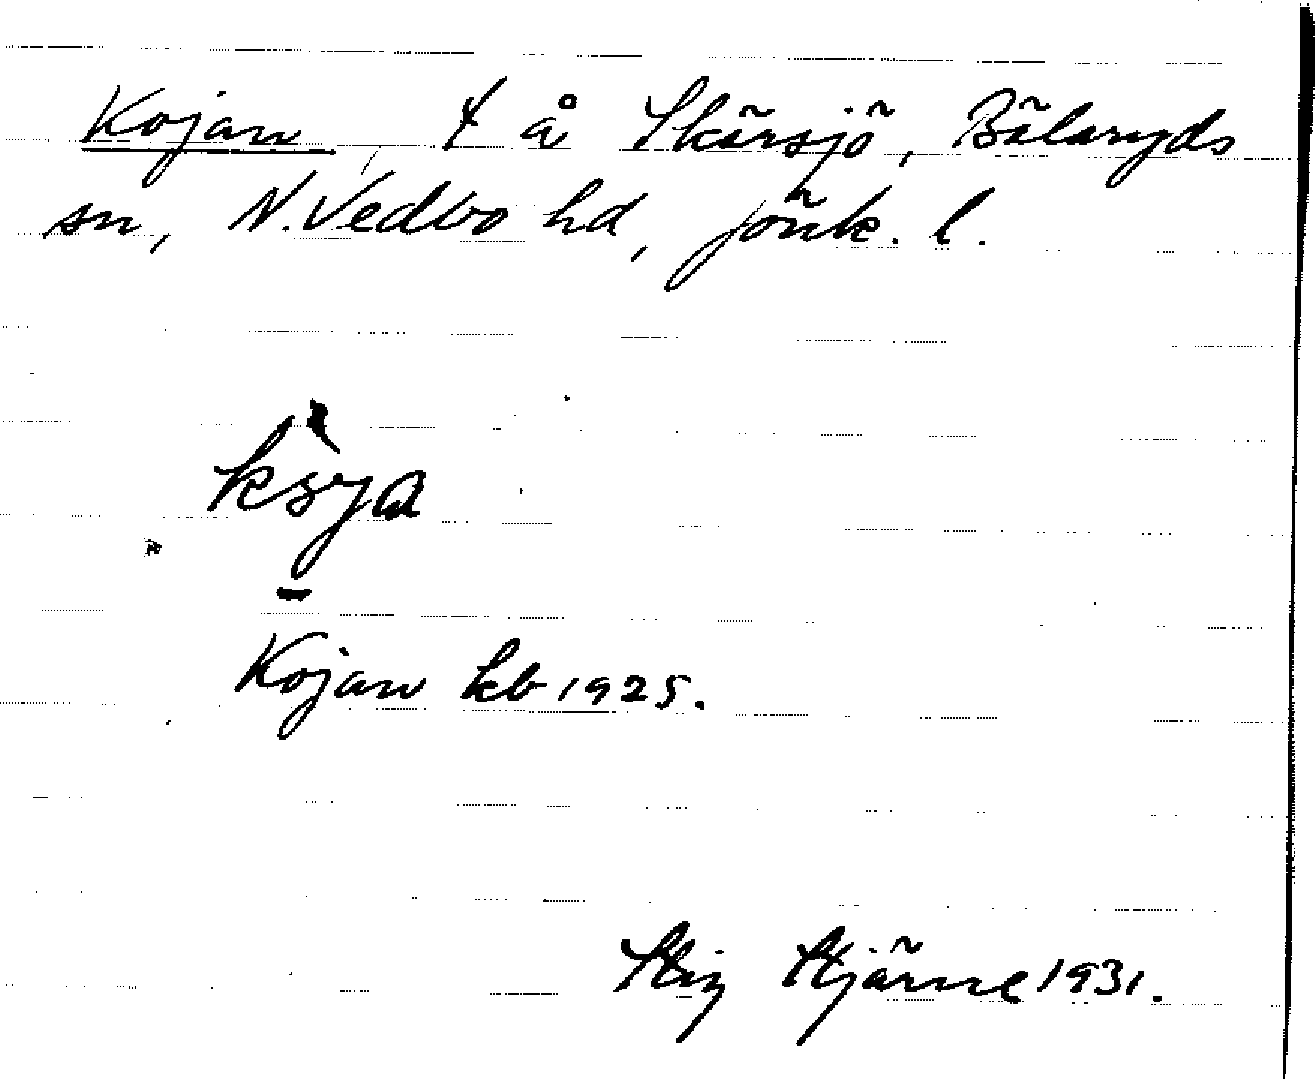 Kojan, t å Skärsjö, Bälaryds
sn, N. Vedbo hd, Jönk. l.
Kojan kb 1925.
Stig Stjärne 1931.